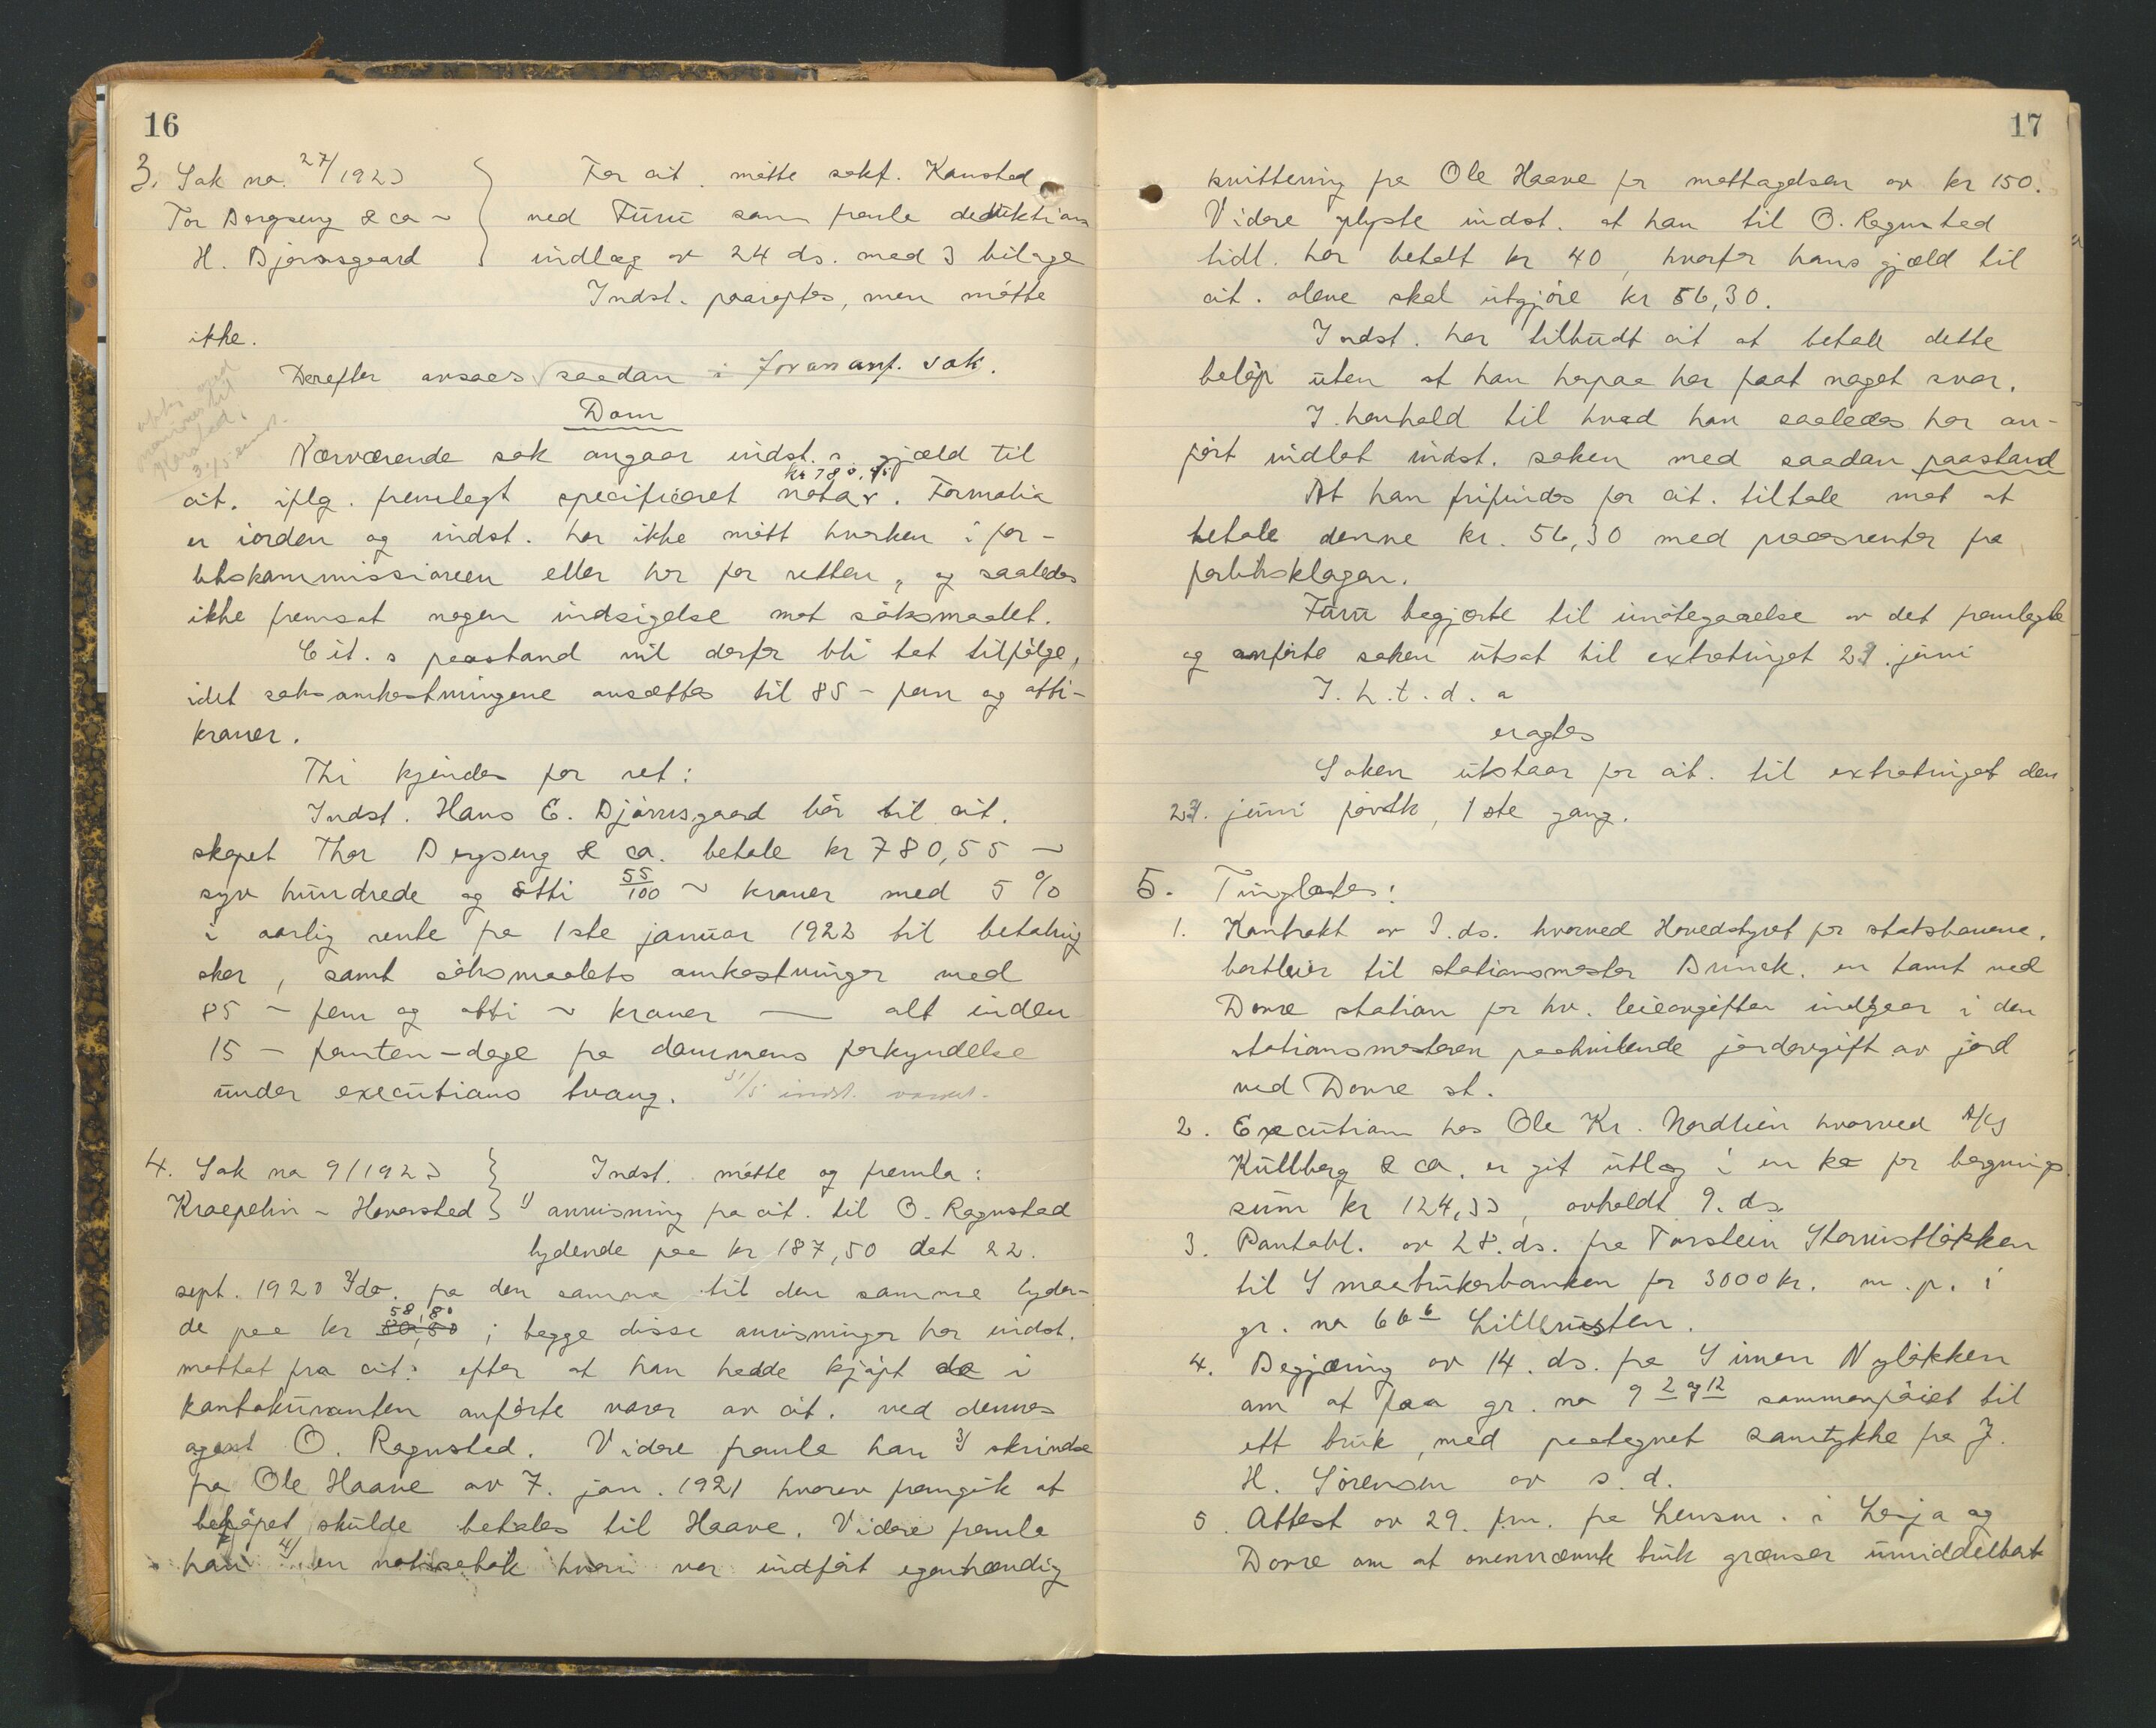 16
3. Sak no. 27/1923
Tor Bergseng & co ~
H. Bjørnsgaard
For cit. møtte sakf. Kausted
ved Furu som fremla deduktions
indlæg av 24 ds. med 3 bilage
Indst. paaroptes, men møtte
ikke.
Derefter avsaes saadan i forananf. sak.
Dom
Nærværende sak angaar indst.s gjæld til
cit. iflg. fremlagt specificeret nota kr 780,55. Formalia
er iorden og indst. har ikke møtt hverken i for-
likskommissionen eller her for retten, og saaledes
ikke fremsat nogen indsigelse mot søksmaalet.
Cit.s paastand vil derfor bli tat tilfølge,
idet saksomkostningene ansættes til 85 - fem og otti-
kroner.
Thi kjendes for ret:
Indst. Hans E. Bjørnsgaard bør til cit.
skapet Thor Bergseng & co. betale kr 780,55 ~
syv hundrede og otti 55/100 ~ kroner med 5 %
i aarlig rente fra 1ste januar 1922 til betaling
sker, samt søksmaalets omkostninger med
85 ~ fem og otti ~ kroner — alt inden
15 - femten - dage fra dommens forkyndelse
under executions tvang. 31/5 indst.
4. Sak no 9/1923
Kraepelin - Haversted
Indst. møtte og fremla:
1) anvisning fra cit. til O. Ragnstad
lydende paa kr 187,50 dat 22.
sept. 1920 2) do. fra den samme til den samme lyden-
de paa kr 58,80; begge disse anvisninger har indst.
mottat fra cit. efter at han hadde kjøpt de i
kontokuranten anførte varer av cit. ved dennes
agent O. Ragnstad. Videre fremla han 3) skrivelse
fra Ole Haave av 7. jan. 1921 hvorav fremgik at
beløpet skulde betales til Haave. Videre fremla
han 4) en notisebok hvori var indført egenhændig
17
kvittering fra Ole Haave for mottagelsen av kr 150.
Videre oplyste indst. at han til O. Ragnstad
tidl. har betalt kr 40, hvorfor hans gjæld til
cit. alene skal utgjøre kr 56,30.
Indst. har tilbudt cit at betale dette
beløp uten at han herpaa har faat noget svar.
I henhold til hvad han saaledes har an-
ført indlot indst. saken med saadan paastand
At han frifindes for cit. tiltale mot at
betale denne kr. 56,30 med procesrenter fra
forliksklagen.
Furu begjærte til imøtegaaelse av det fremlagte
og anførte saken utsat til extratinget 21. juni
I. h. t. d. a
eragtes
Saken utstaar for cit. til extratinget den
21. juni førstk, 1ste gang.
5. Tinglæstes:
1. Kontrakt av 3. ds. hvorved Hovedstyret for statsbanene.
bortleier til stationsmester Brinck. en tomt ved
Dovre station for hv. leieavgiften indgaar i den
stationsmesteren paahvilende jordavgift av jord
ved Dovre st.
2. Execution hos Ole Kr. Nordlien hvorved A/S
Kullberg & co. er git utlæg i en ko for
sum kr 124,33, avholdt 9. ds.
3. Pantobl. av 28. ds. fra Torstein
til Smaabrukerbanken for 3000 kr. m. p. i
gr. no 66 6 Lillerusten.
4. Begjæring av 14. ds. fra Simen Nyløkken
om at faa gr. no 9 2 og 12 sammenføiet til
ett bruk, med paategnet samtykke fra J.
H. Sørensen av s. d.
5. Attest av 29. f.m. fra Lensm. i Lesja og
Dovre om at ovennævnte bruk grænser umiddelbart